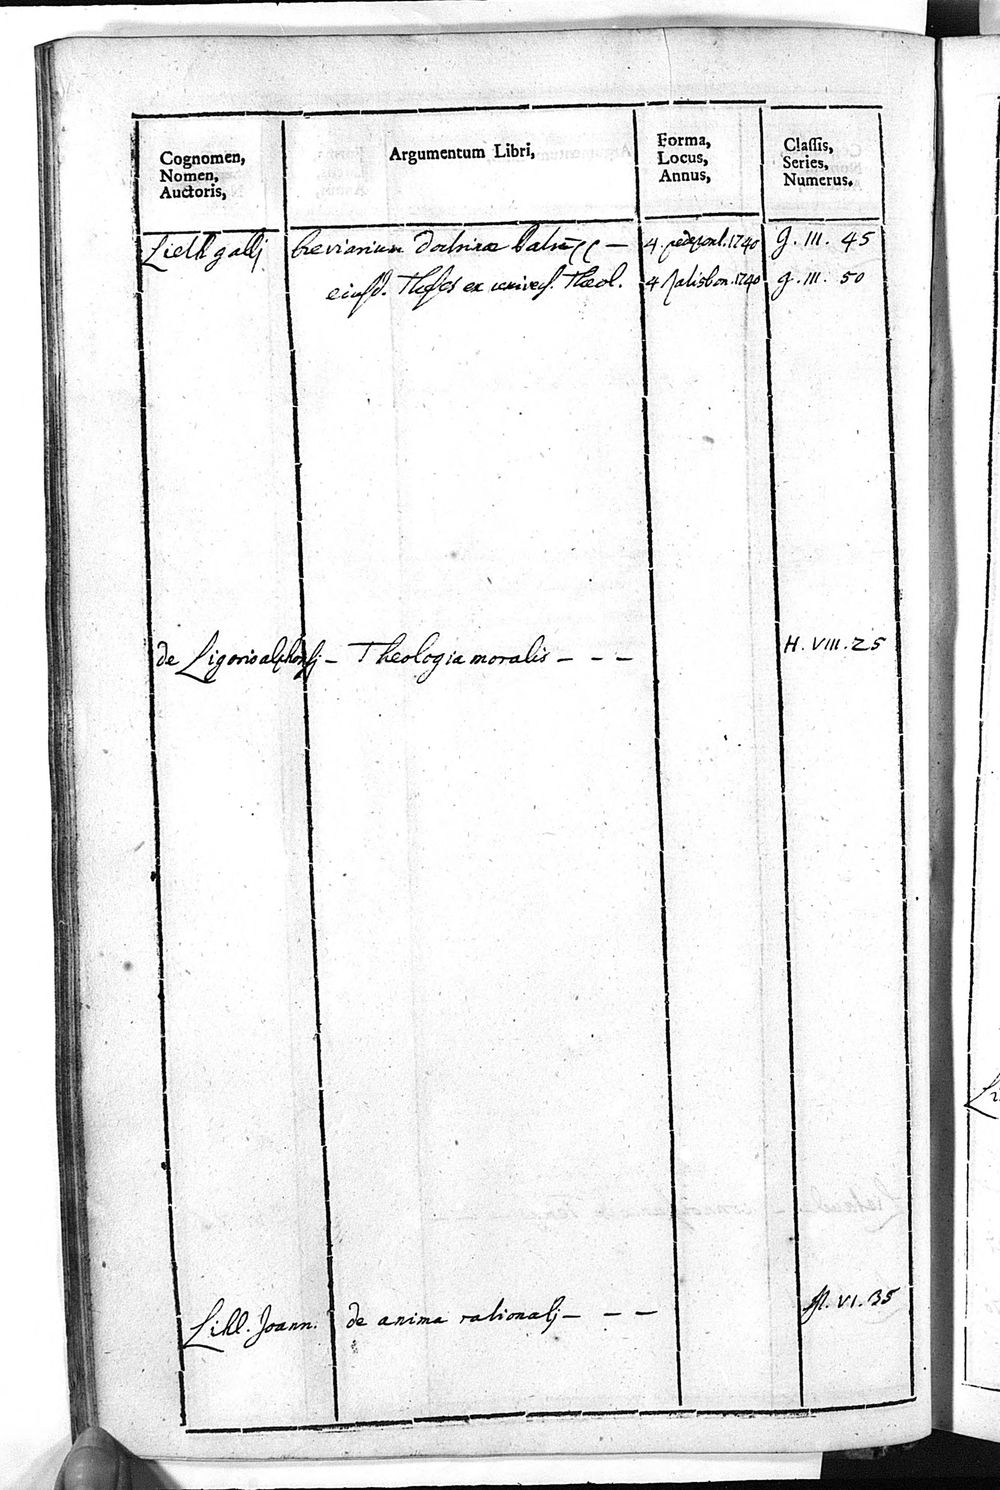 Cognomen,
Nomen,
Auctoris,
Argumentum Libri,
Forma,
Locus,
Annus,
Classis,
Series,
Numerus.
galli breviarium 4. pedepont. 1740 g. III. 45
eiusd. Theses ex univers. Theol. 4 Ratisbon. 1740 g. III. 50
de Ligorio alphonsj – Theologia moralis – – – H. VIII. 25
Joann. de anima rationalj – – – VI. 35
Li